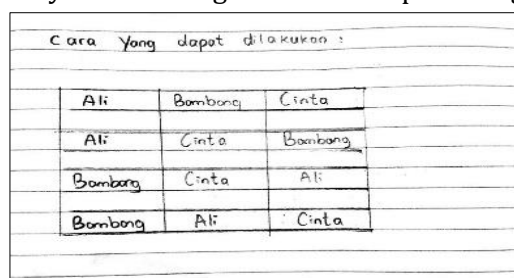 Cara Yang dapat dilakukan :
Ali Bambang Cinta
Ali Cinta Bambang
Bambang Cinta Ali
Bambang Ali Cinta